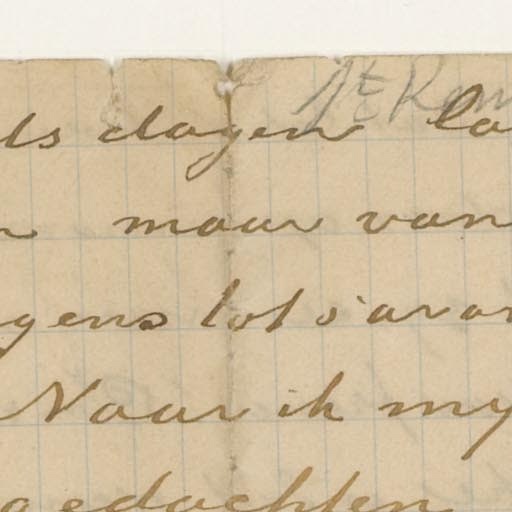 ls dagen la
n maar van
gens tot s'avon
Naar ik my
gedachten